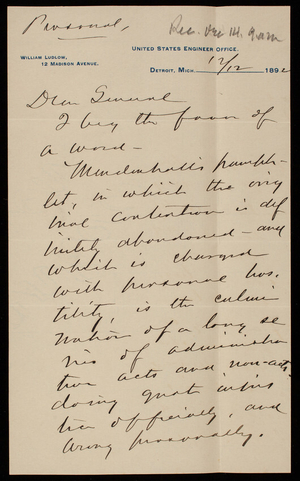 Personal,
Rec. Dec 14. 9 a m
UNITED STATES ENGINEER OFFICE.
WILLIAM LUDLOW,
12 MADISON AVENUE.
DETROIT, MICH. 12/12 1892
Dear General
I beg the favor of
a word —
Mendenhall's pamph-
let, in which the orig
inal contention is def
initely abandoned — and
which is charged
with personal hos-
tility, is the culmi
nation of a long se
ries of administra
tive acts and non-acts
doing great injus
tice officially, and
wrong personally.